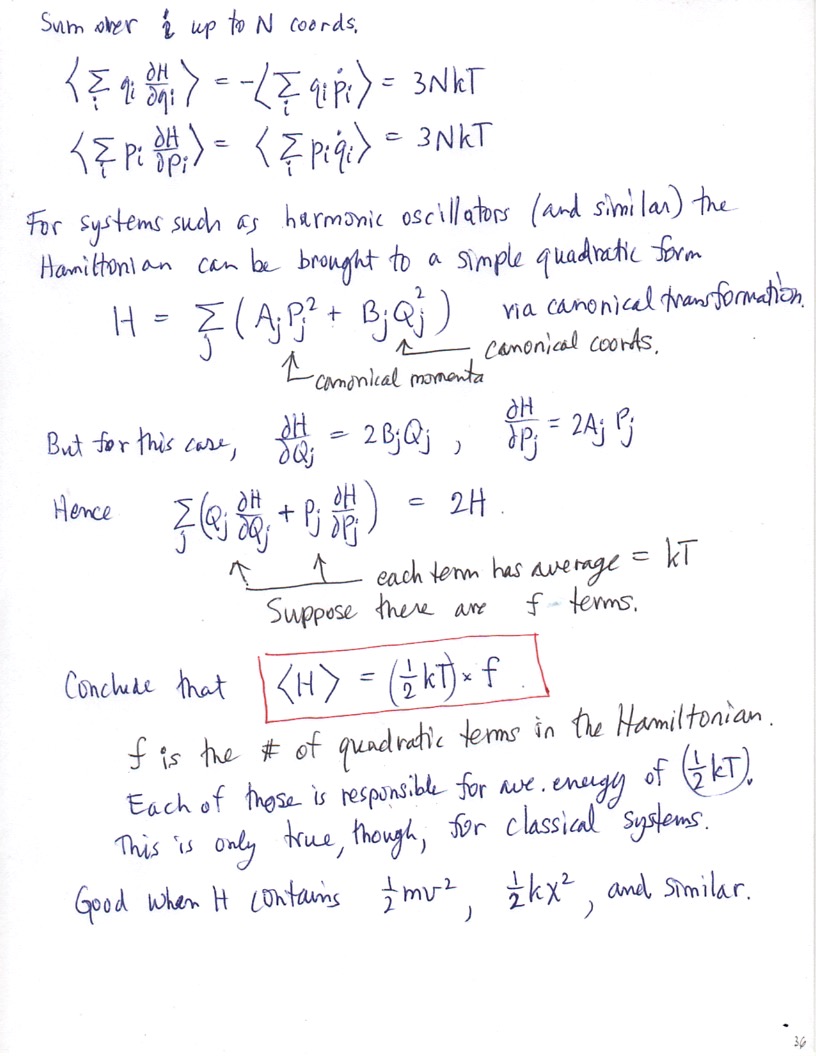 Sum over i up to N coords.
⟨∑_i q_i ∂H/∂q_i⟩ = -⟨∑_i q_i ṗ_i⟩ = 3NkT
⟨∑_i p_i ∂H/∂p_i⟩ = ⟨∑_i p_i q̇_i⟩ = 3NkT
For systems such as harmonic oscillators (and similar) the
Hamiltonian can be brought to a simple quadratic form
H = ∑_j (A_j P_j² + B_j Q_j²) via canonical transformation.
canonical coords.
canonical momenta
But for this case, ∂H/∂Q_j = 2B_jQ_j , ∂H/∂P_j = 2A_j P_j
Hence ∑_j (Q_j ∂H/∂Q_j + P_j ∂H/∂P_j) = 2H.
each term has average = kT
Suppose there are f terms.
Conclude that ⟨H⟩ = (½kT) × f.
f is the # of quadratic terms in the Hamiltonian.
Each of these is responsible for ave. energy of (½kT).
This is only true, though, for classical systems.
Good when H contains ½mv², ½kx², and similar.
36